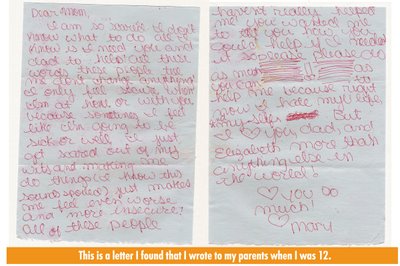 Dear Mom,
I am so scared I don't
know what to do all I
know is I need you and
dad to help! All these
words these people tell
me don't mean anything!
I only feel secure when
I'm at home or with you
because sometimes I feel
like I'm going to be
sick or well I just
get scared out of my
wits and making me
do things (I know this
sounds spoiled) just makes
me feel even worse
and more insecure!
All of these people
haven't really helped
me you wanted me
to tell you how you
could help if I needed
it so please please do
as much as
you can to
help me because right
now I hate my life,
But
I ♡ you, dad, and
Elizabeth more than
anything else in
the world!
♡ you so
much!
♡ Mary
This is a letter I found that I wrote to my parents when I was 12.